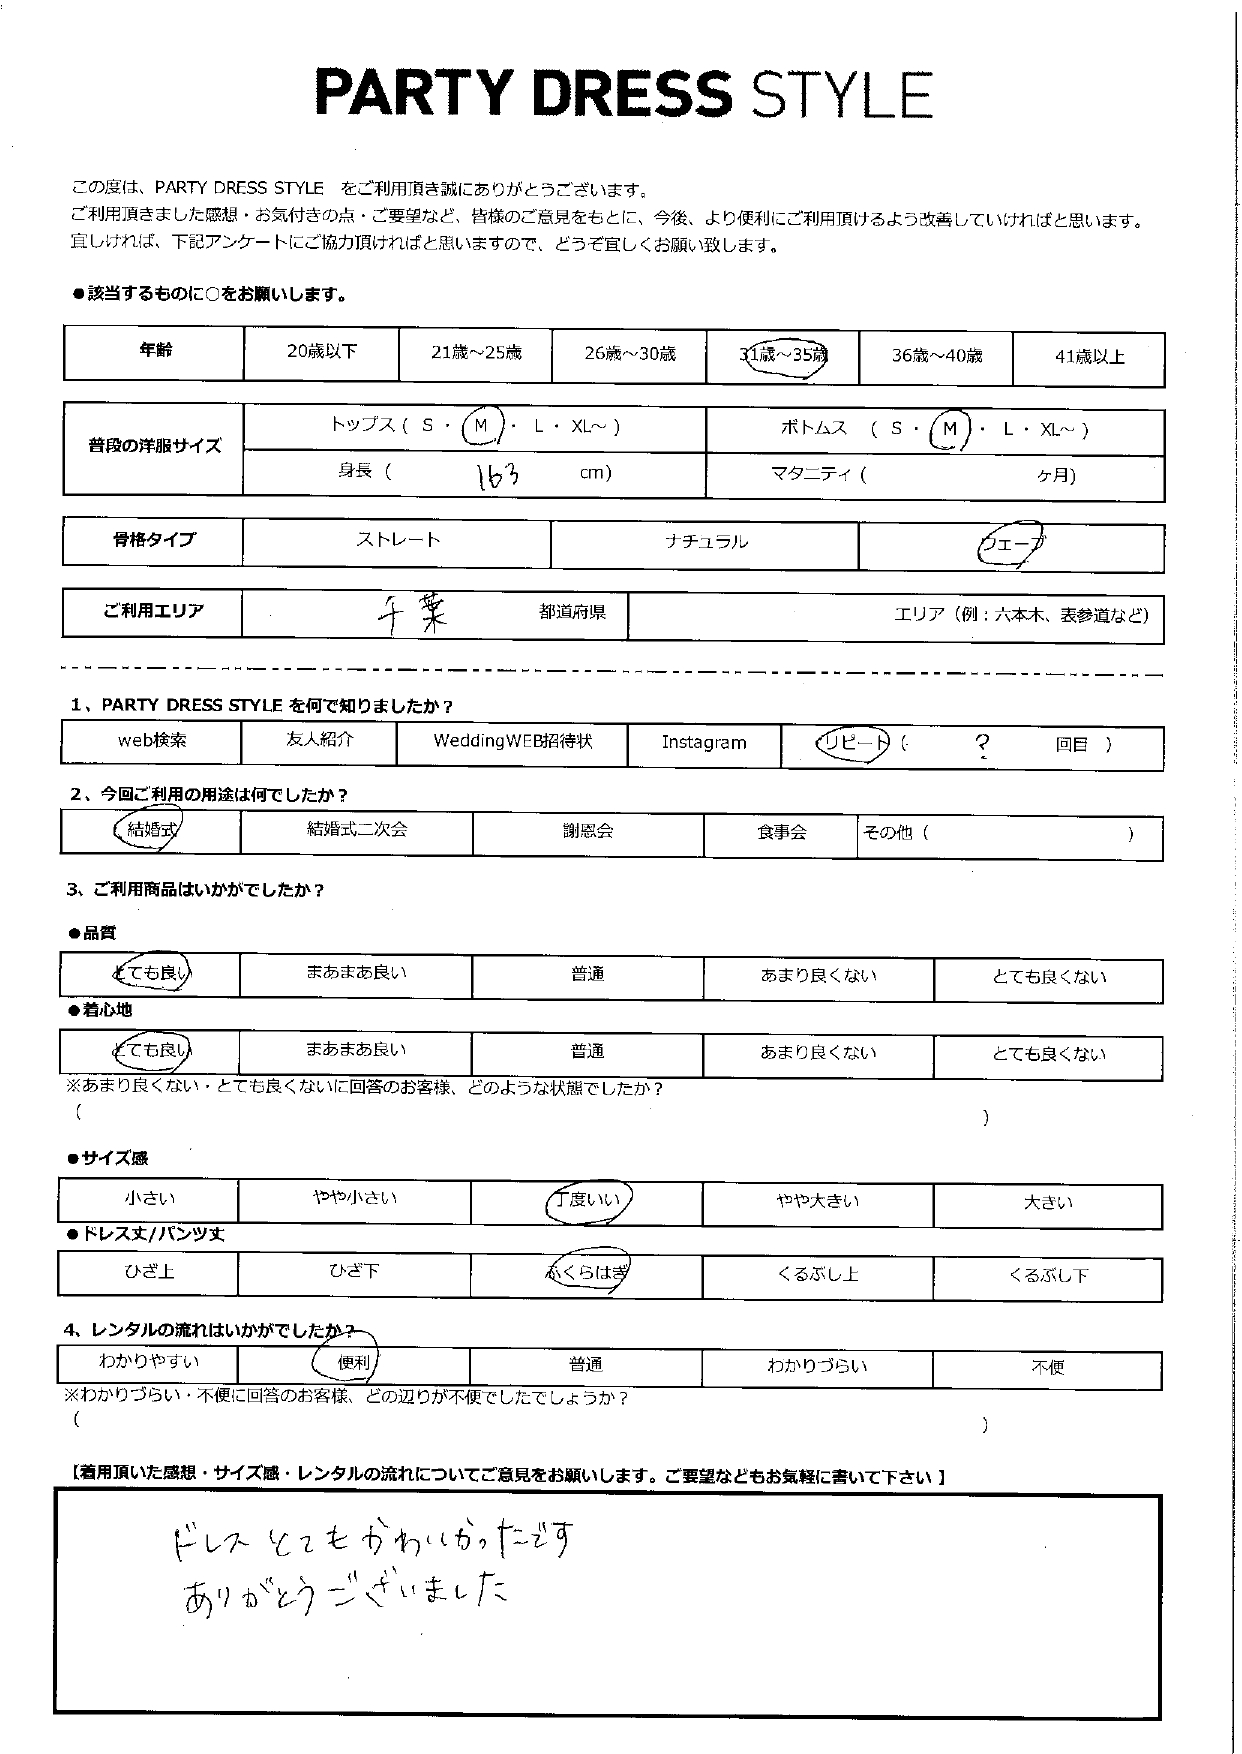 PARTY DRESS STYLE
この度は、PARTY DRESS STYLE をご利用頂き誠にありがとうございます。
ご利用頂きました感想・お気付きの点・ご要望など、皆様のご意見をもとに、今後、より便利にご利用頂けるよう改善していければと思います。
宜しければ、下記アンケートにご協力頂ければと思いますので、どうぞ宜しくお願い致します。
●該当するものに○をお願いします。
年齢 20歳以下 21歳～25歳 26歳～30歳 31歳～35歳 36歳～40歳 41歳以上
普段の洋服サイズ
トップス ( S ・ M ・ L ・ XL～ ) ボトムス ( S ・ M ・ L ・ XL～ )
身長 ( 163 cm) マタニティ ( ヶ月)
骨格タイプ ストレート ナチュラル ウェーブ
ご利用エリア 千葉 都道府県 エリア（例：六本木、表参道など）
1、PARTY DRESS STYLE を何で知りましたか？
web検索 友人紹介 WeddingWEB招待状 Instagram リピート ( ? 回目 )
2、今回ご利用の用途は何でしたか？
結婚式 結婚式二次会 謝恩会 食事会 その他 ( )
3、ご利用商品はいかがでしたか？
●品質
とても良い まあまあ良い 普通 あまり良くない とても良くない
●着心地
とても良い まあまあ良い 普通 あまり良くない とても良くない
※あまり良くない・とても良くないに回答のお客様、どのような状態でしたか？
( )
●サイズ感
小さい やや小さい 丁度いい やや大きい 大きい
●ドレス丈/パンツ丈
ひざ上 ひざ下 ふくらはぎ くるぶし上 くるぶし下
4、レンタルの流れはいかがでしたか？
わかりやすい 便利 普通 わかりづらい 不便
※わかりづらい・不便に回答のお客様、どの辺りが不便でしたでしょうか？
( )
【着用頂いた感想・サイズ感・レンタルの流れについてご意見をお願いします。ご要望などもお気軽に書いて下さい】
ドレスとてもかわいかったです
ありがとうございました